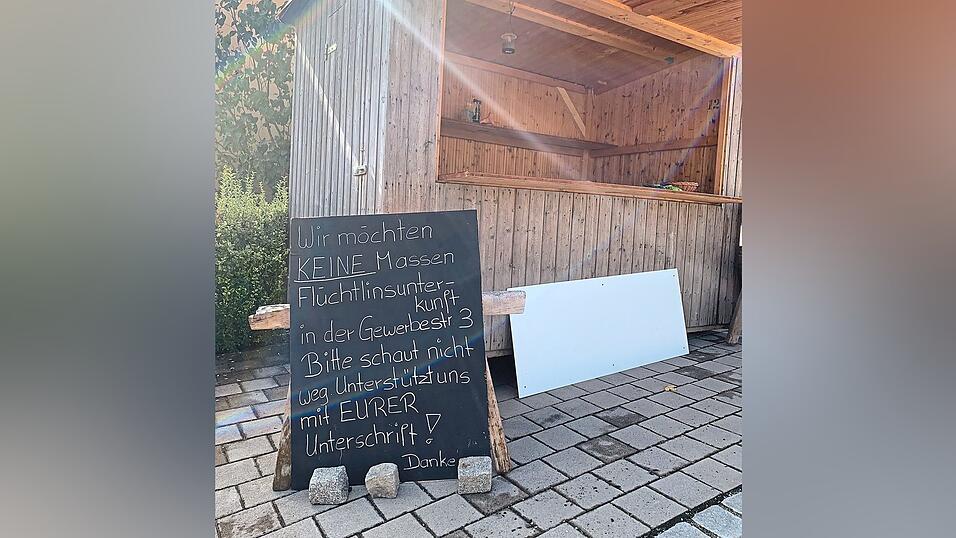 Wir möchten
KEINE Massen
Flüchtlinsunter-
kunft
in der Gewerbestr 3
Bitte schaut nicht
weg. Unterstützt uns
mit EURER
Unterschrift!
Danke
12